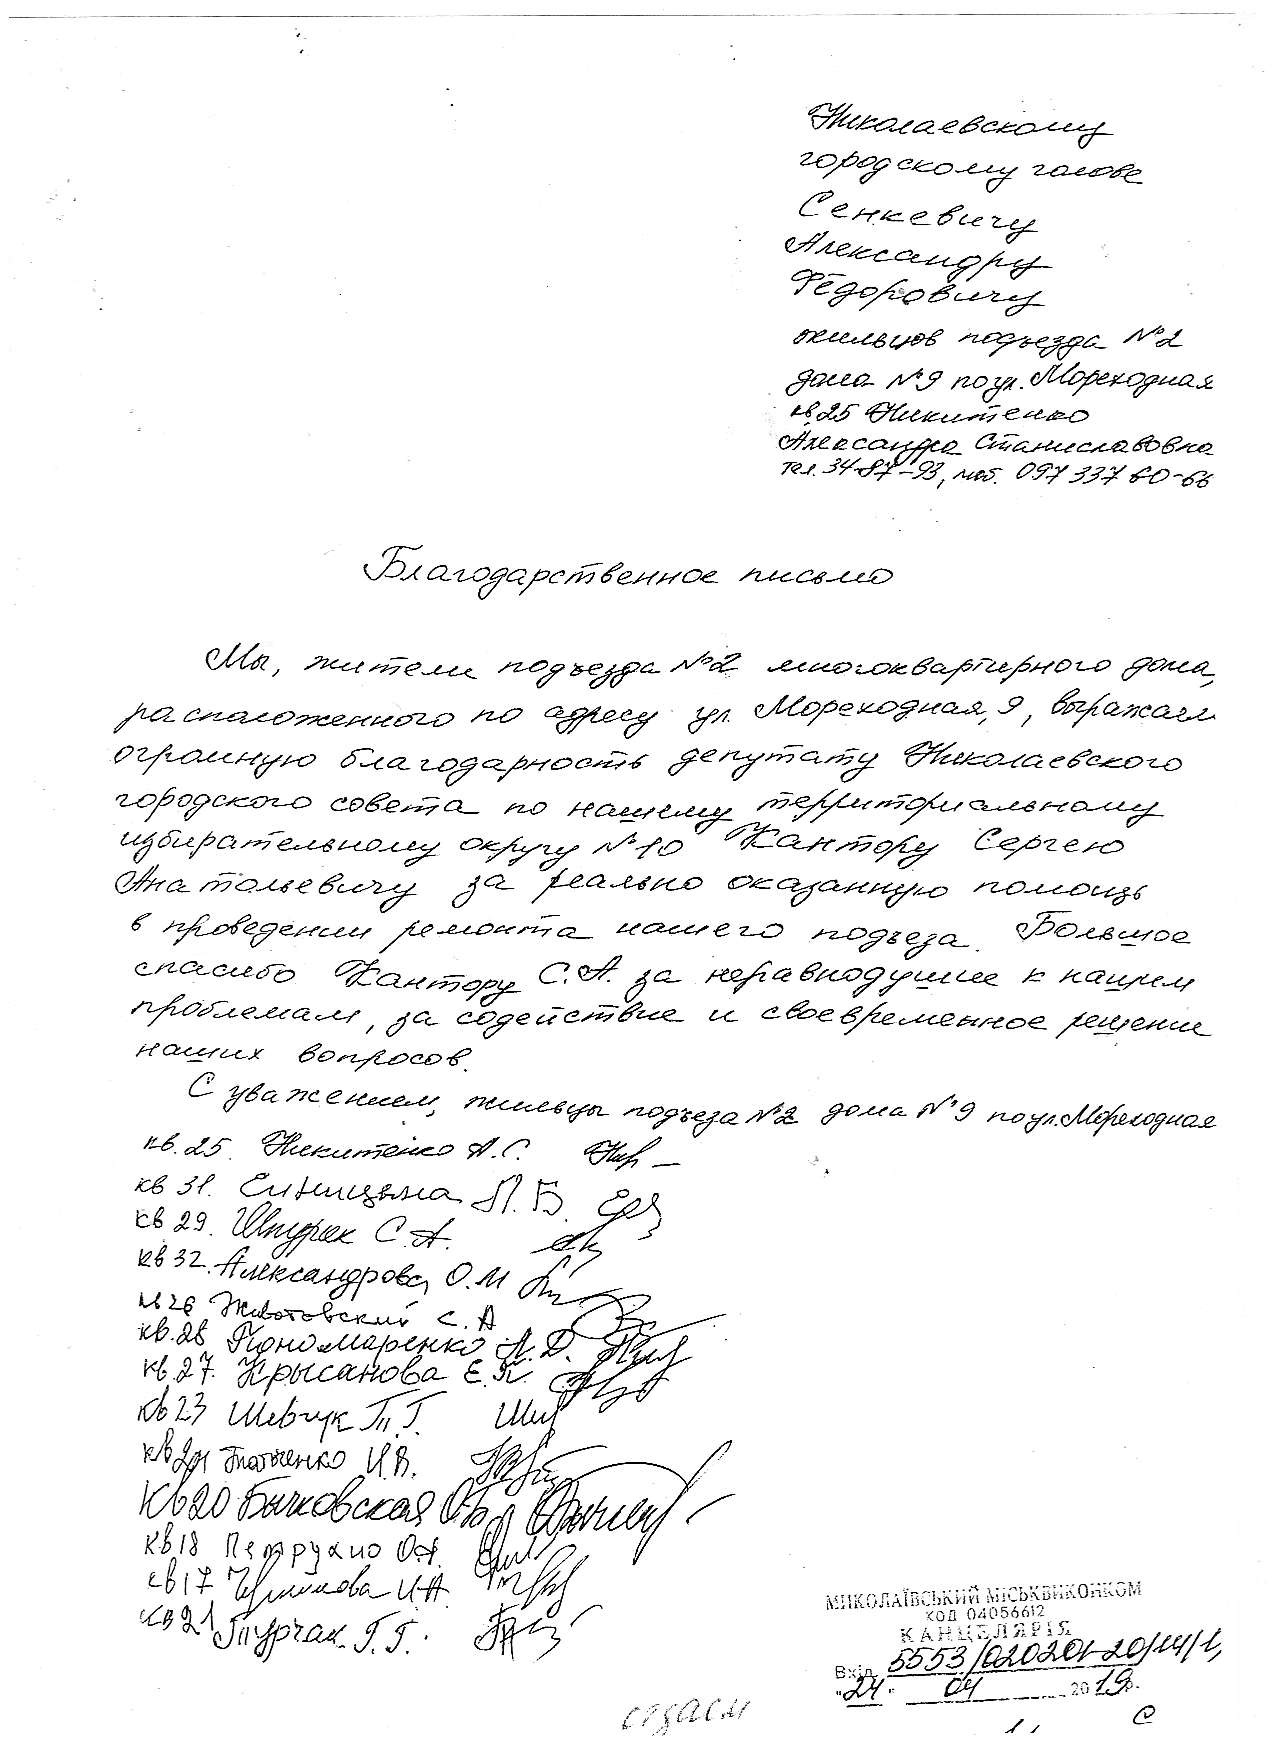 Николаевскому
городскому голове
Сенкевичу
Александру
Фёдоровичу
жильцов подъезда №2
дома №9 по ул. Мореходная
кв.25 Никитенко
Александра Станиславовна
тел. 34-87-93, моб. 097 337 60-66
Благодарственное письмо
Мы, жители подъезда №2 многоквартирного дома,
расположенного по адресу ул. Мореходная, 9, выражаем
огромную благодарность депутату Николаевского
городского совета по нашему территориальному
избирательному округу №10 Кантору Сергею
Анатольевичу за реально оказанную помощь
в проведении ремонта нашего подъеза. Большое
спасибо Кантору С.А. за неравнодушие к нашим
проблемам, за содействие и своевременное решение
наших вопросов.
С уважением, жильцы подъеза №2 дома №9 по ул. Мореходная
кв. 25. Никитенко А.С.
кв 31. Синицына Л.Б.
кв 29. Шпурек С.А.
кв 32. Александрова О.М
кв 26 Животовский С.А
кв. 28 Пономаренко А.Д.
кв. 27. Крысанова Е.К.
кв 23 Шевчук Т.Г.
кв И.В.
кв 20 Бычковская
кв 18
кв 17 И.А.
кв 21 Турчак Г.Г.
МИКОЛАЇВСЬКИЙ МІСЬКВИКОНКОМ
КОД 04056612
КАНЦЕЛЯРІЯ
Вхід. 5553/020201-20/14/1,
"24" 04 2019р.